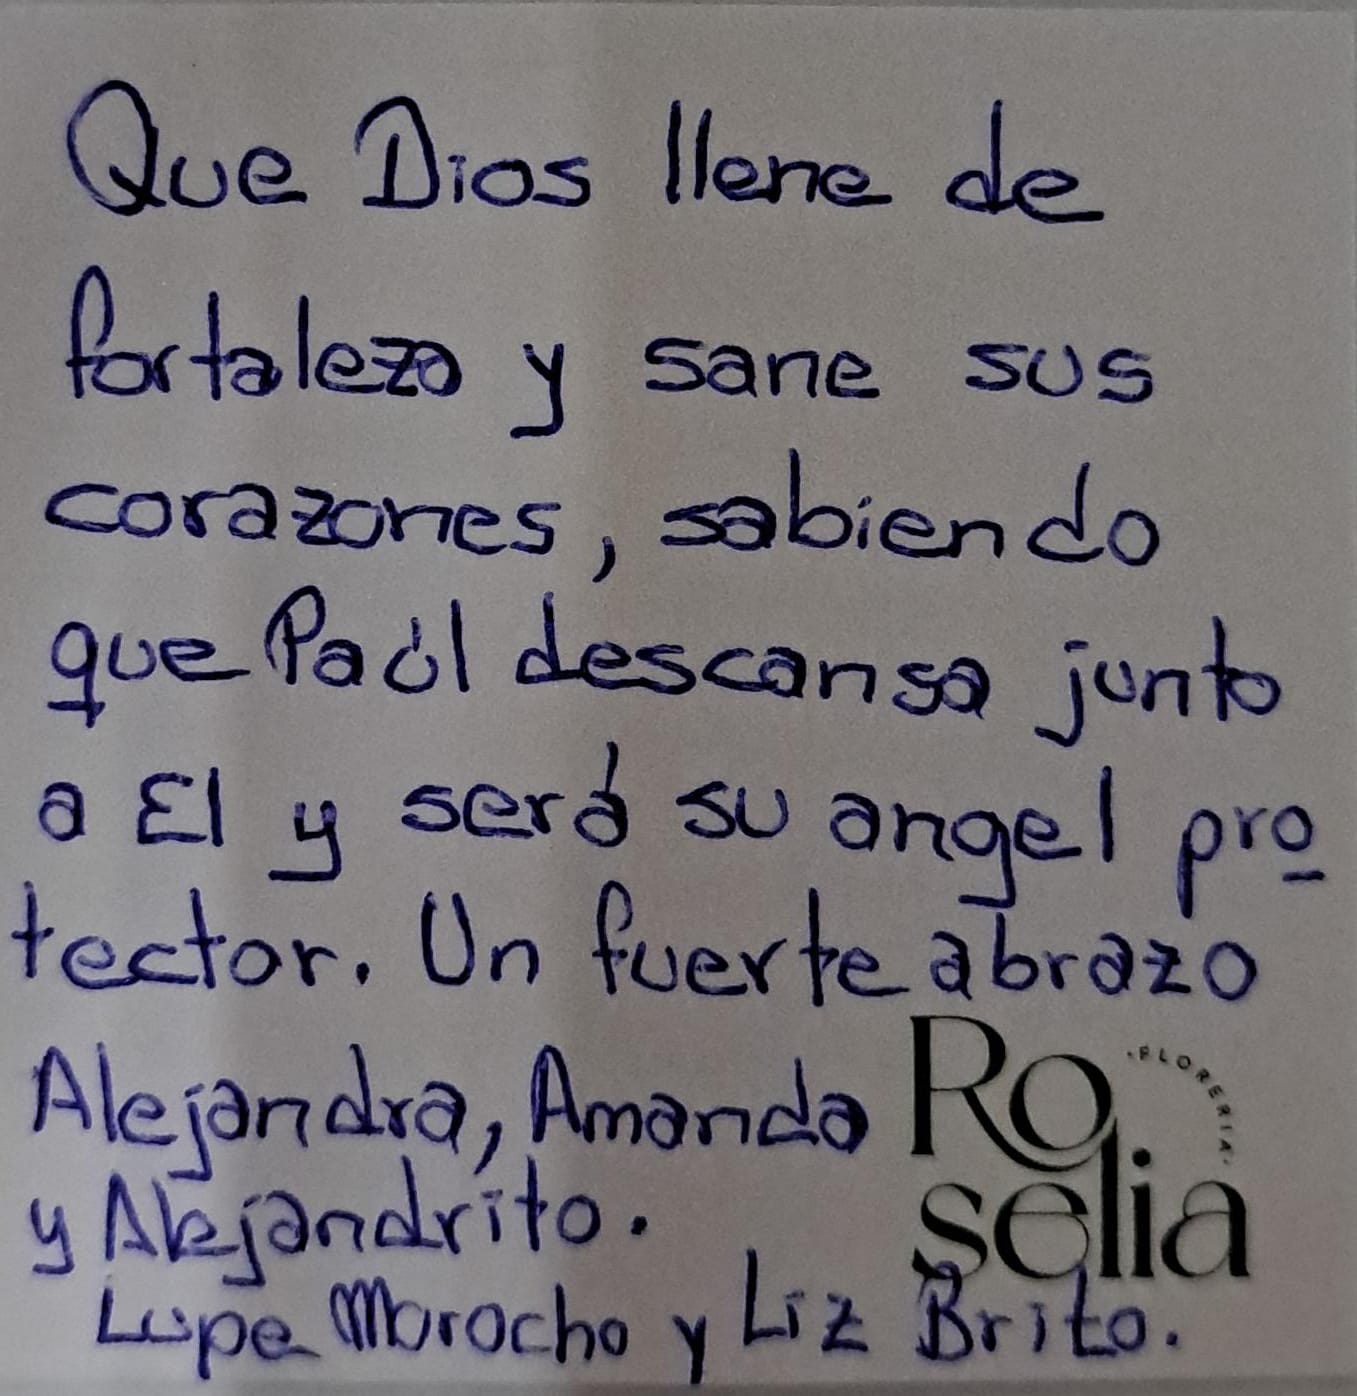 Que Dios llene de
fortaleza y sane sus
corazones, sabiendo
que Paúl descansa junto
a El y será su angel pro
tector. Un fuerte abrazo
Alejandra, Amanda
y Alejandrito.
Lupe Morocho y Liz Brito.
Ro
selia
·FLORERIA·